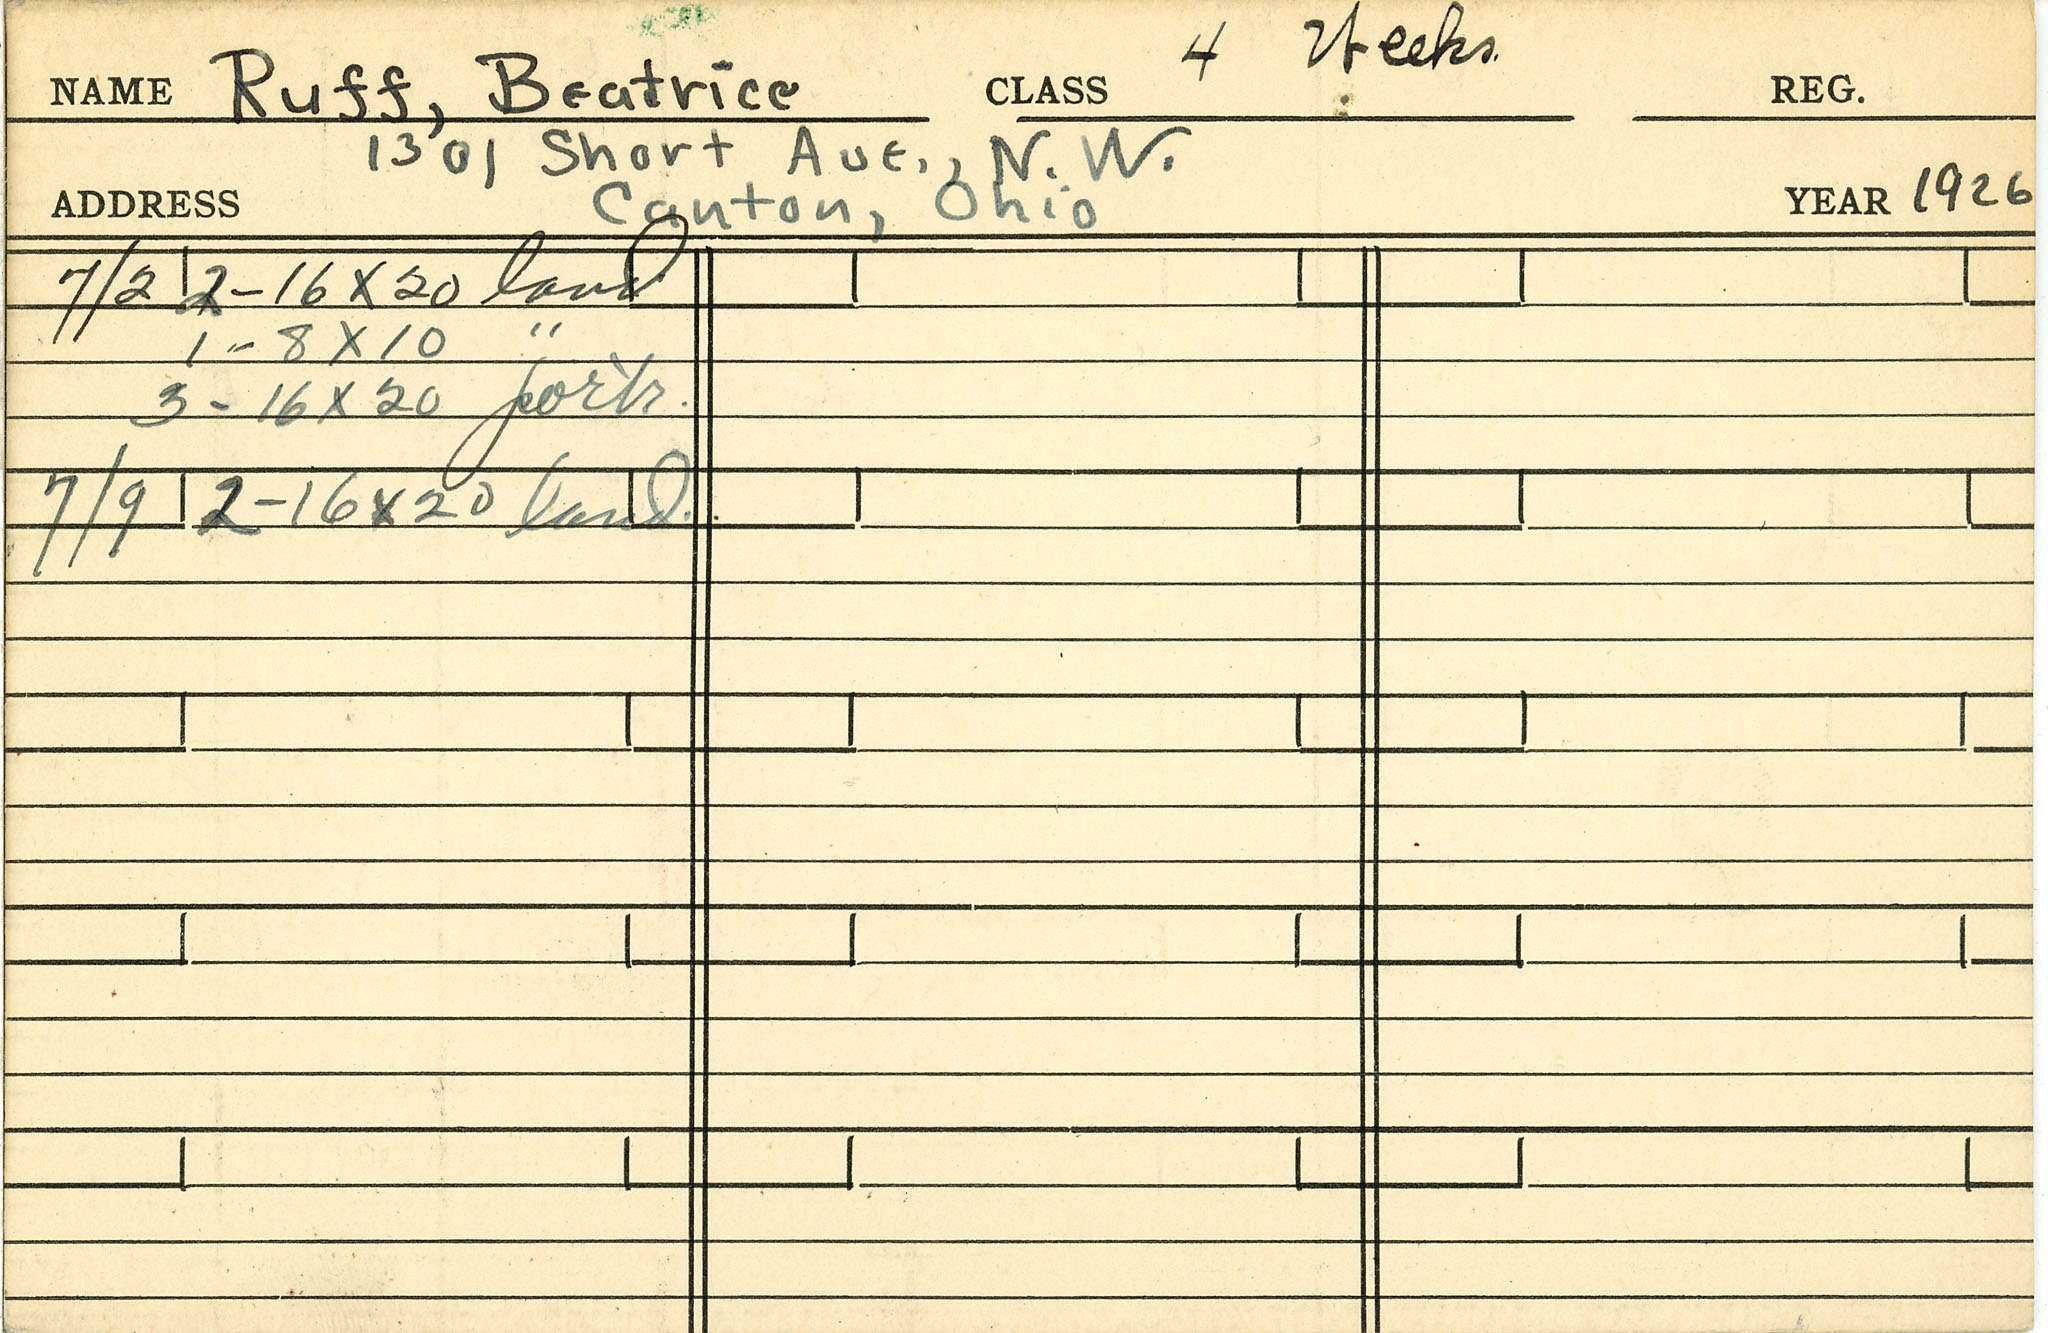 NAME Ruff, Beatrice CLASS 4 Weeks. REG.
1301 Short Ave., N.W.
ADDRESS Canton, Ohio YEAR 1926
7/2 2-16X20 land
1-8X10 "
3-16X20 portr.
7/9 2-16x20 land.